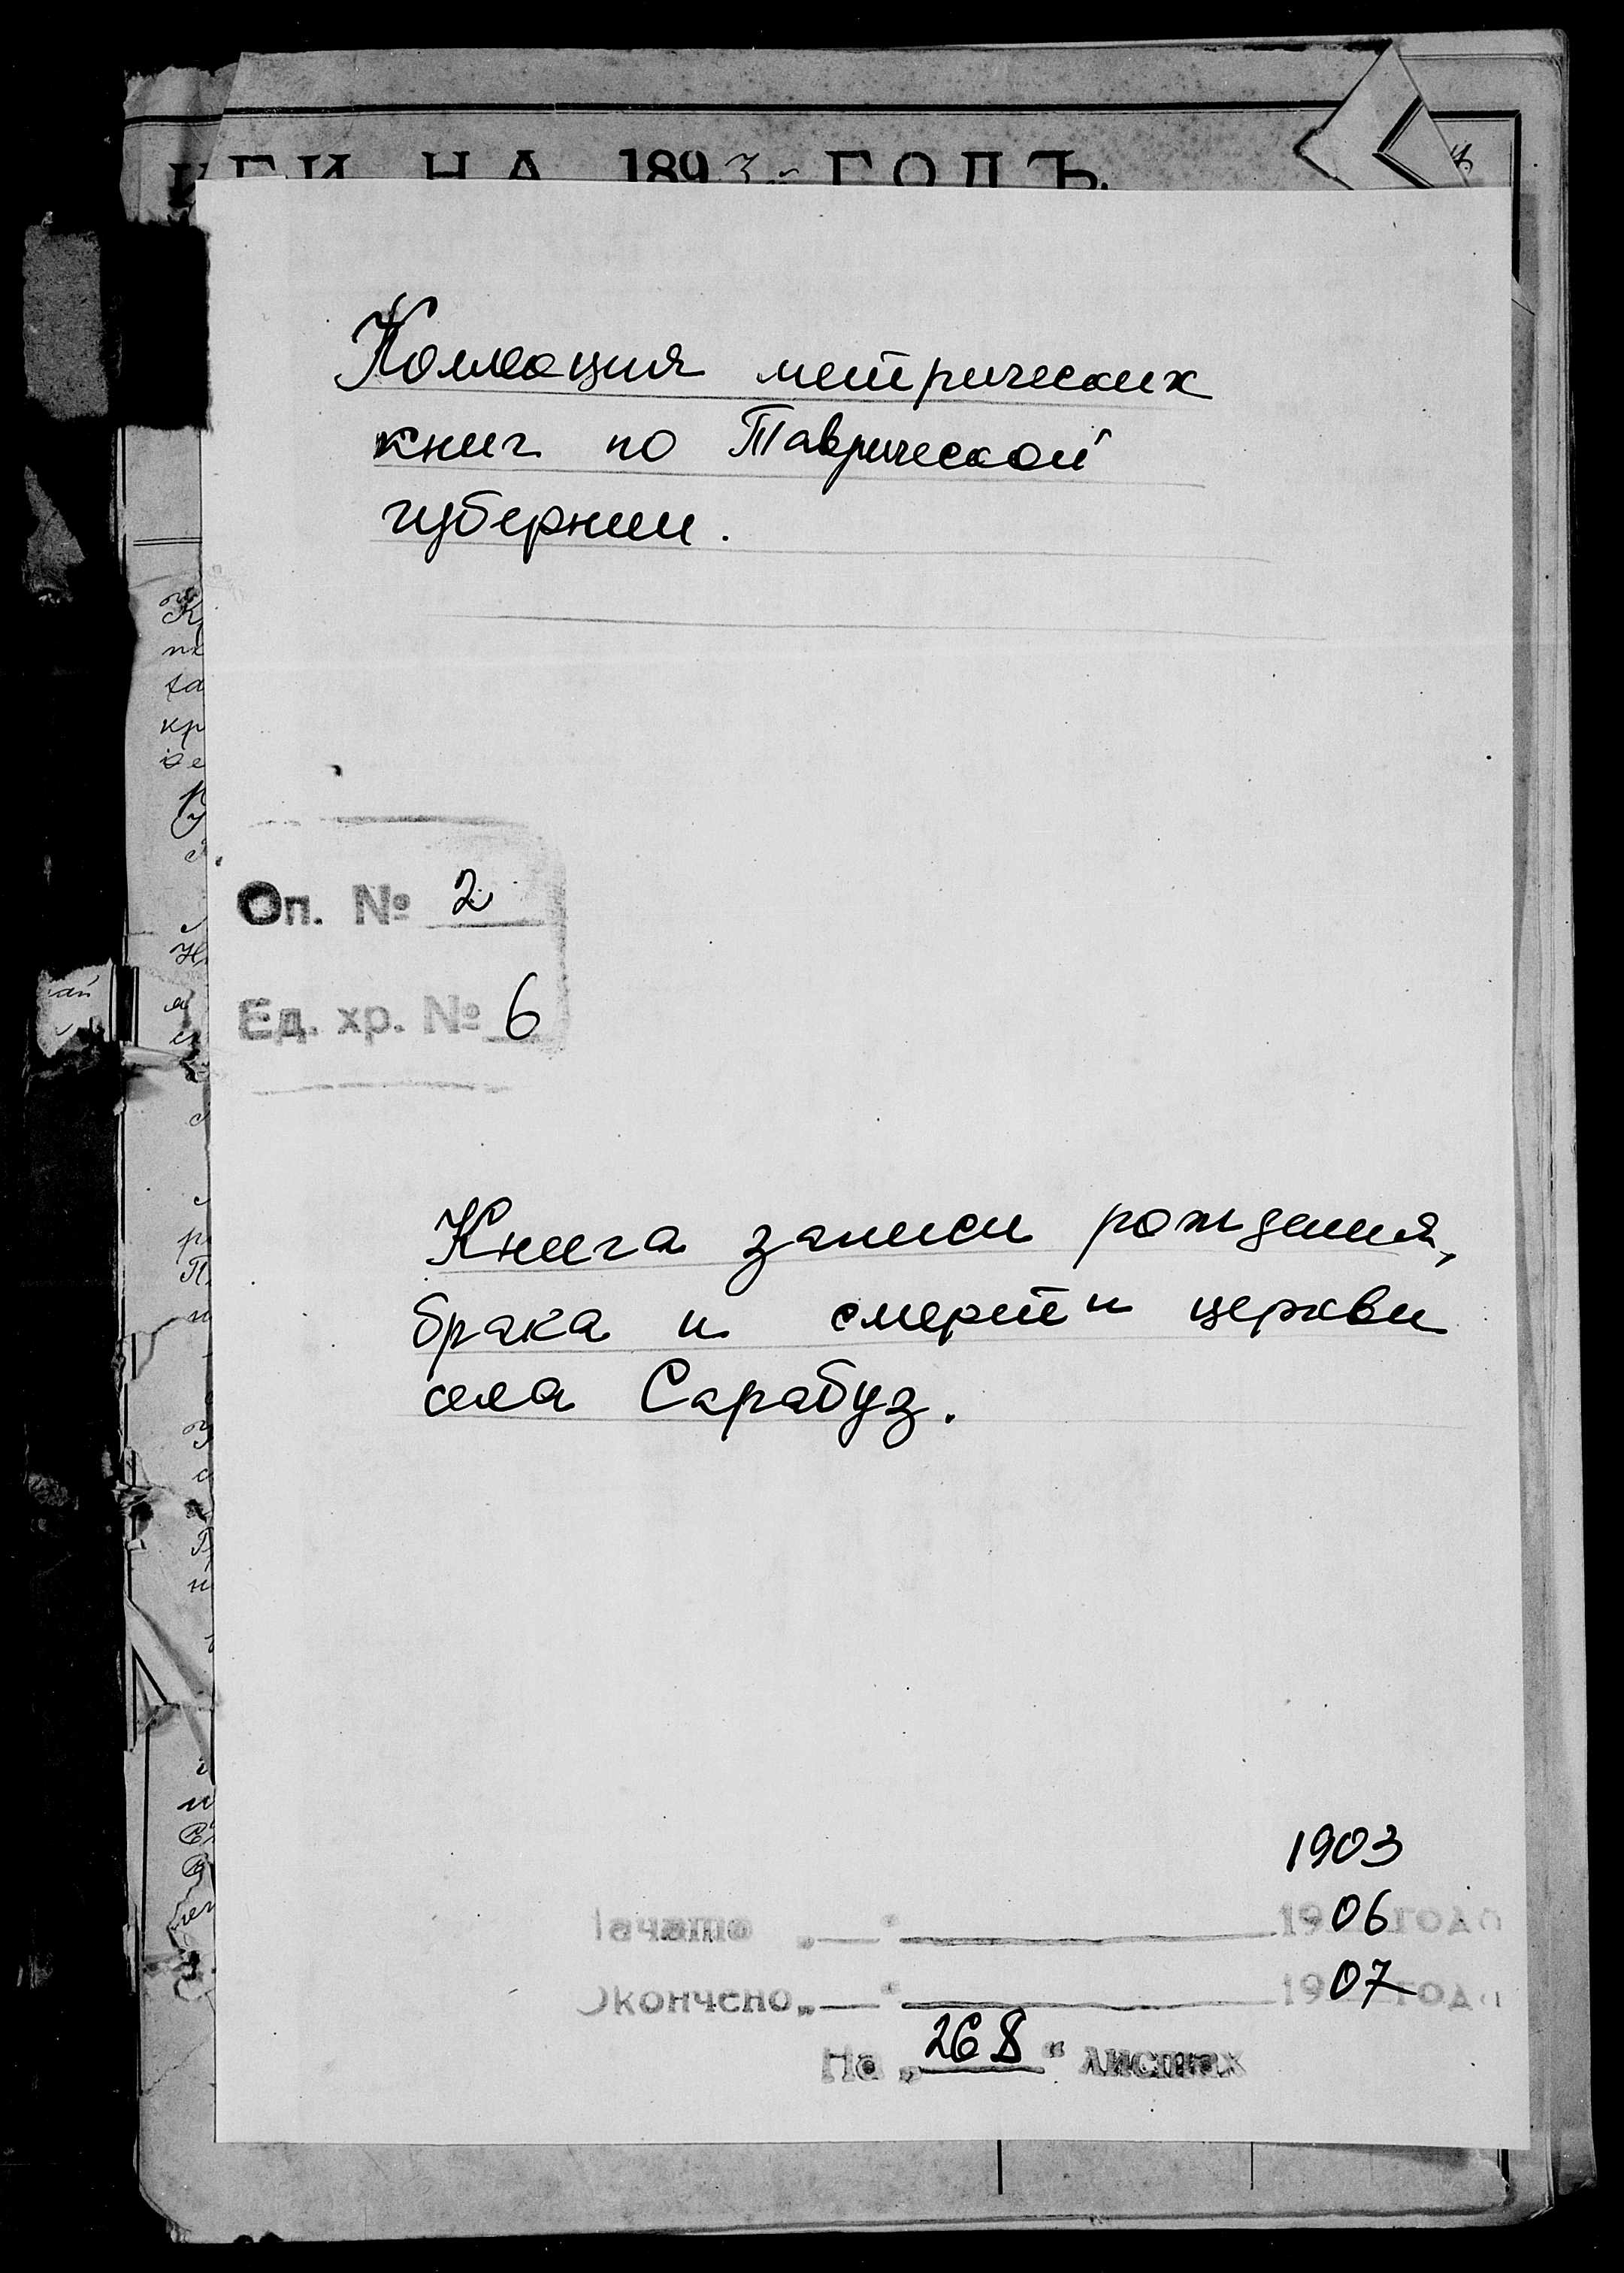 НА 189 ГОДЪ.
Коллекция метрических
книг по Таврической
губернии.
Оп. № 2
Ед. хр. № 6
Книга записи рождения,
брака и смерти церкви
села Сарабуз.
1903
Начато „ “ 1906 года
Окончено „ “ 1907 года
На „268“ листах